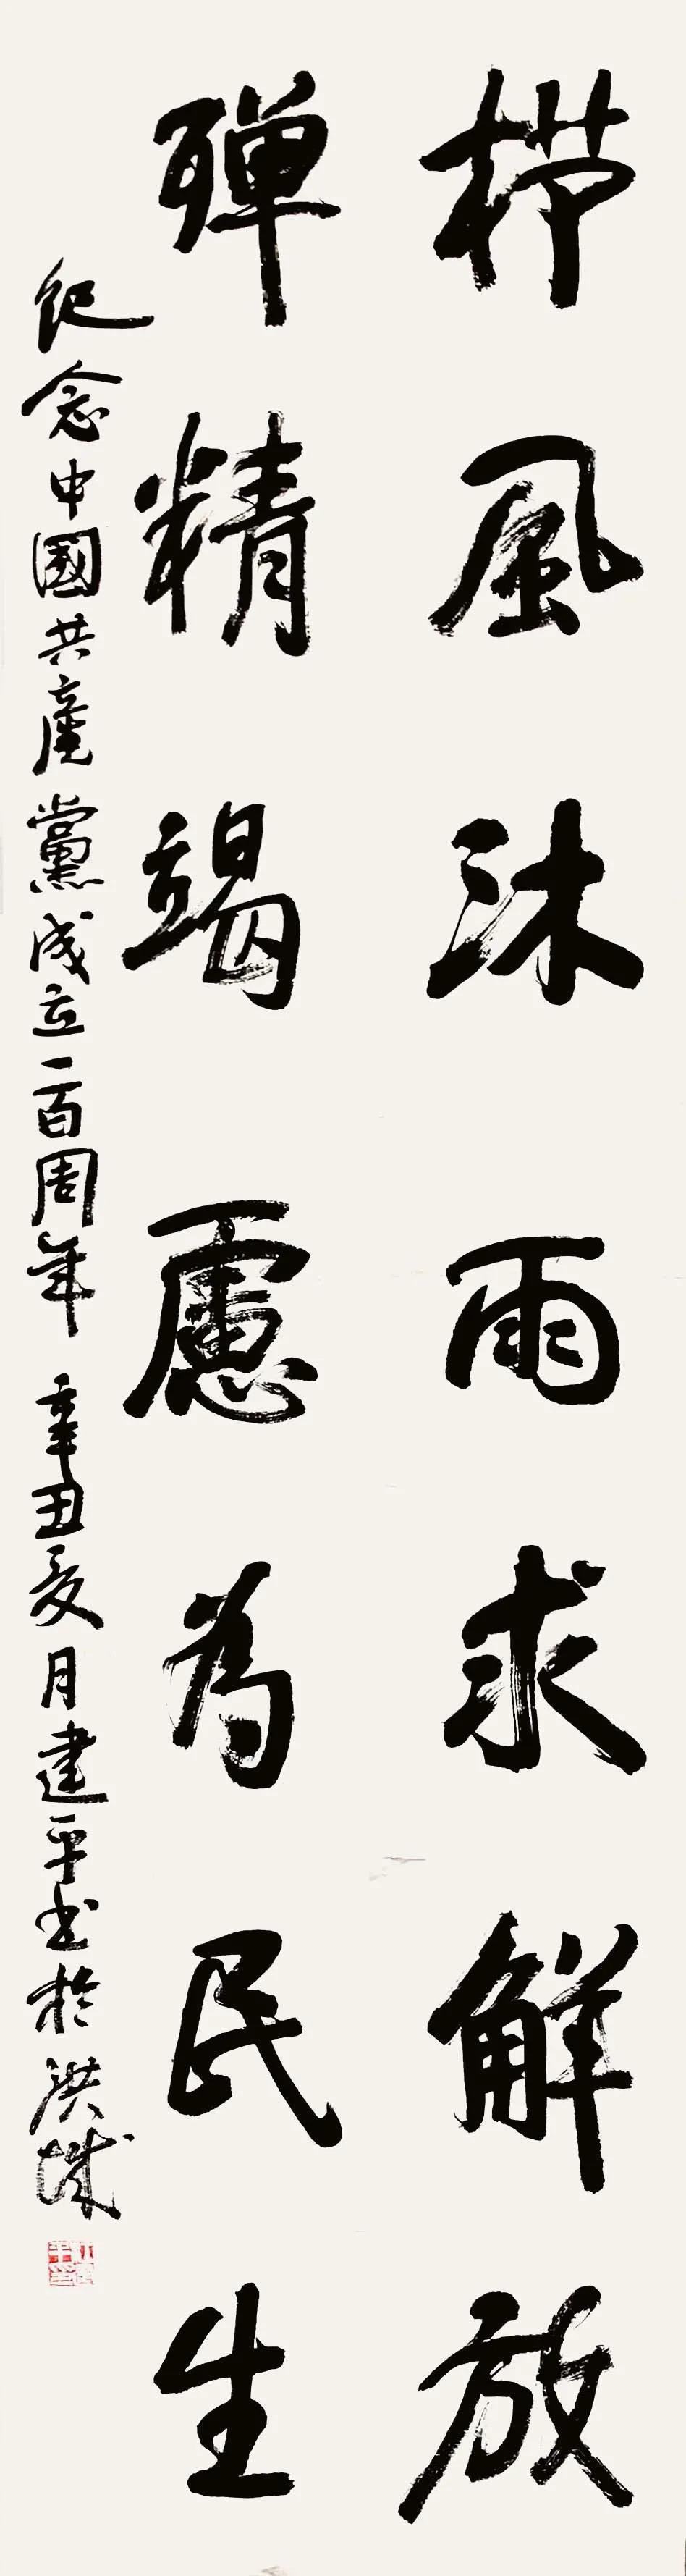 栉風沐雨求解放
殫精竭慮為民生
纪念中國共產黨成立一百周年 辛丑夏月建平书於洪城